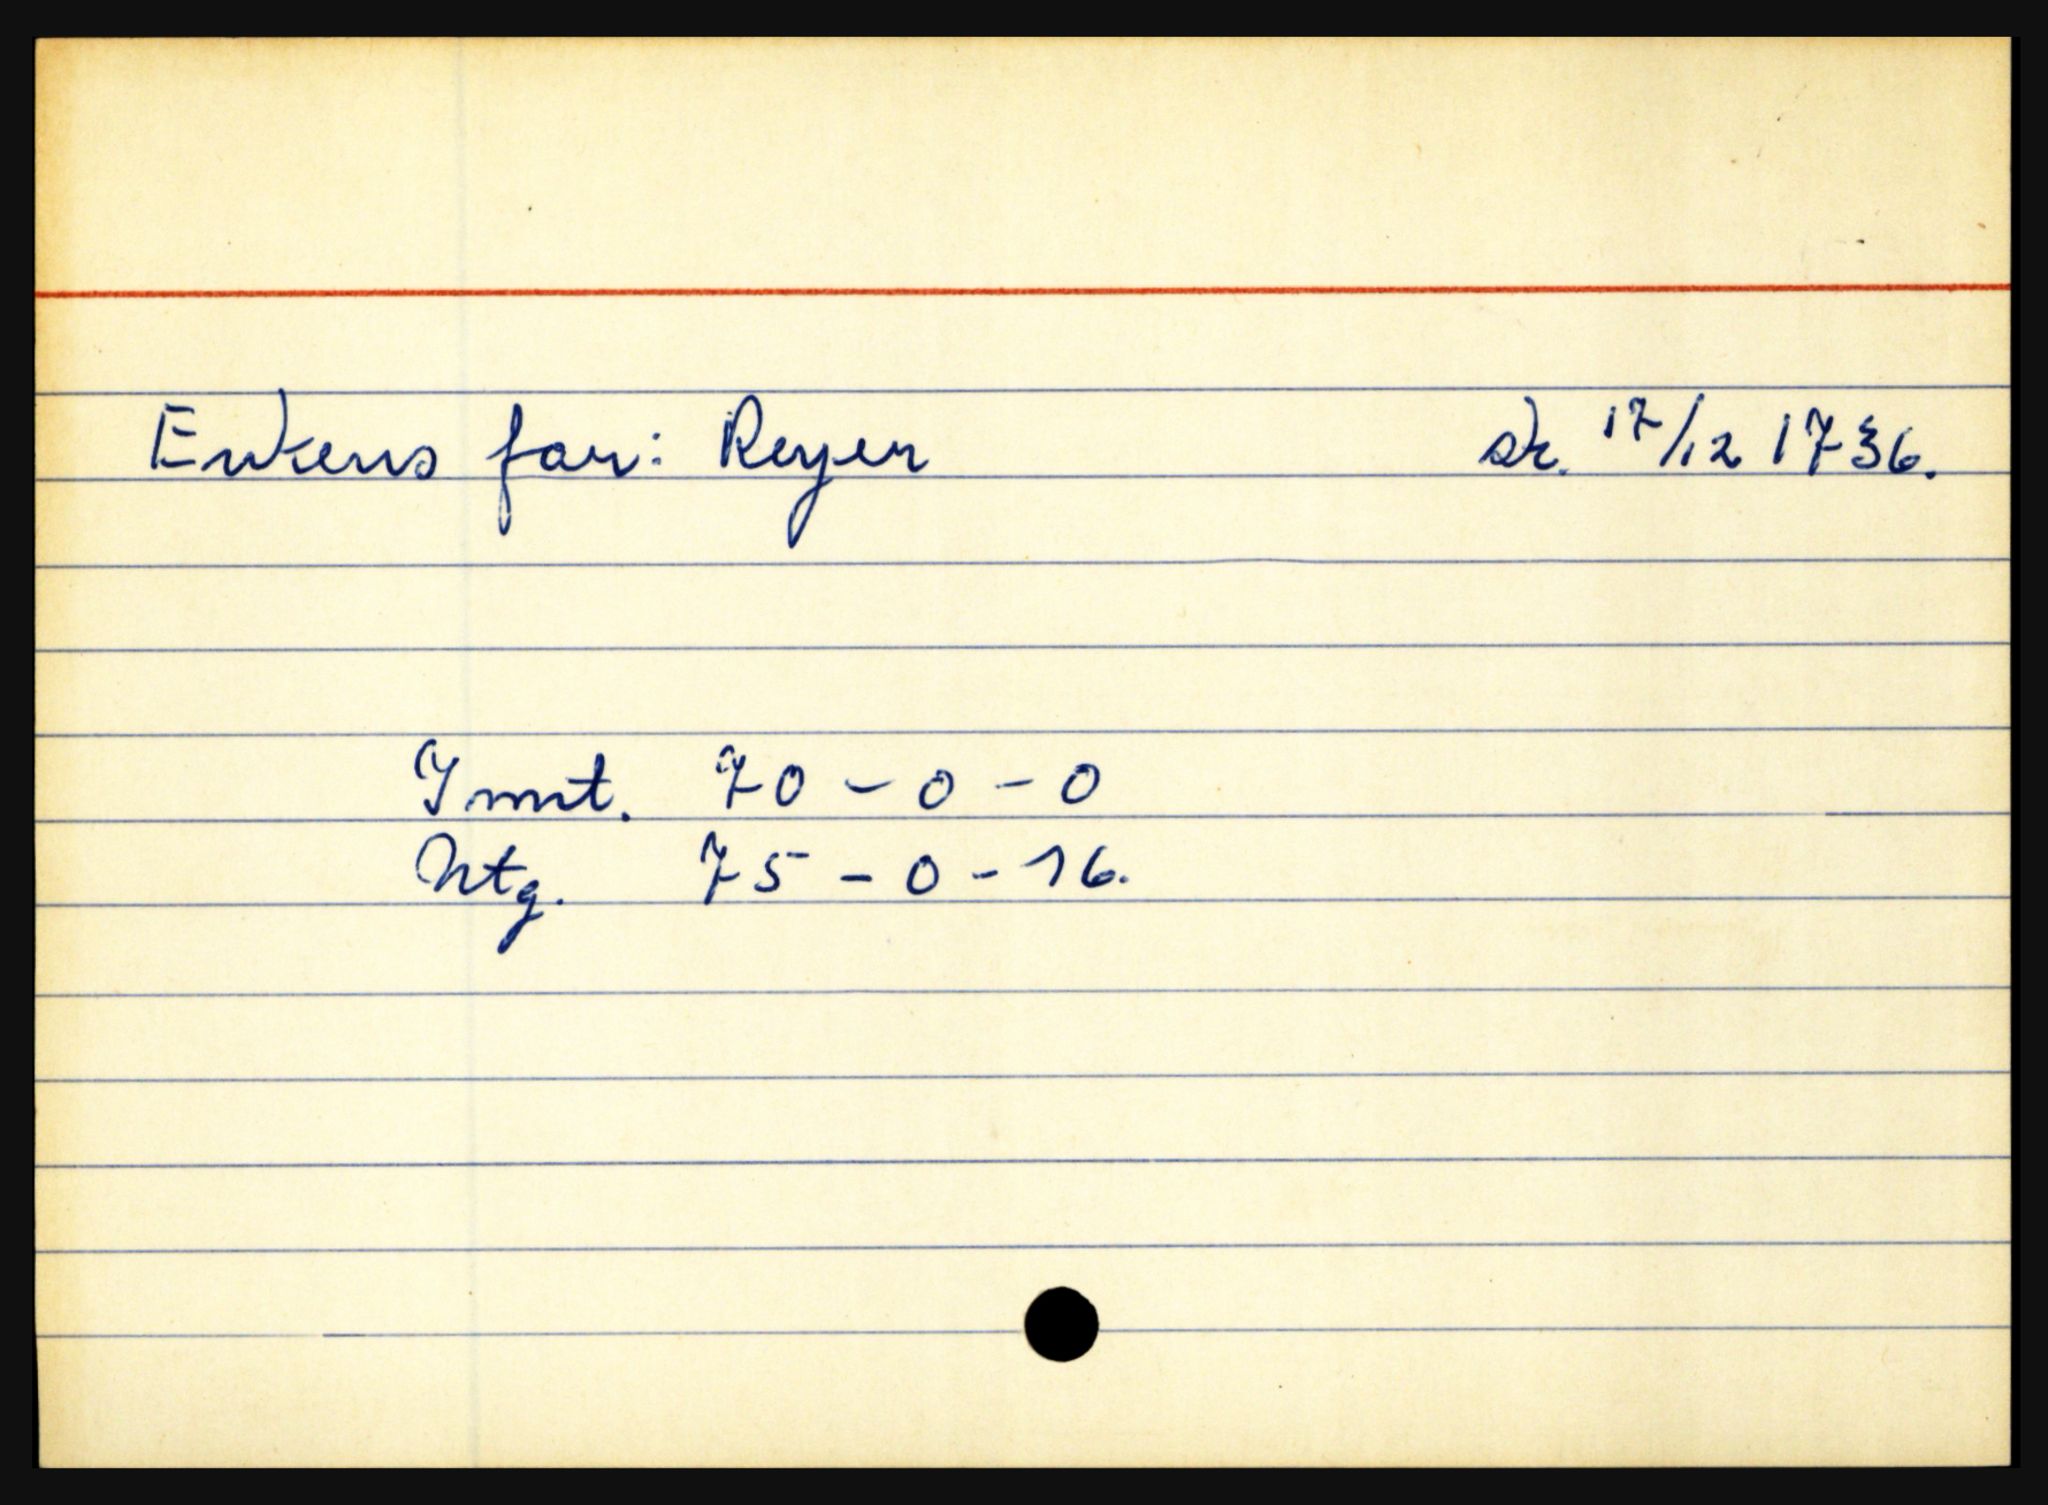 Enkens far: Reyer sk. 17/12 1736.
Innt. 70 - 0 - 0
Utg. 75 - 0 - 16.